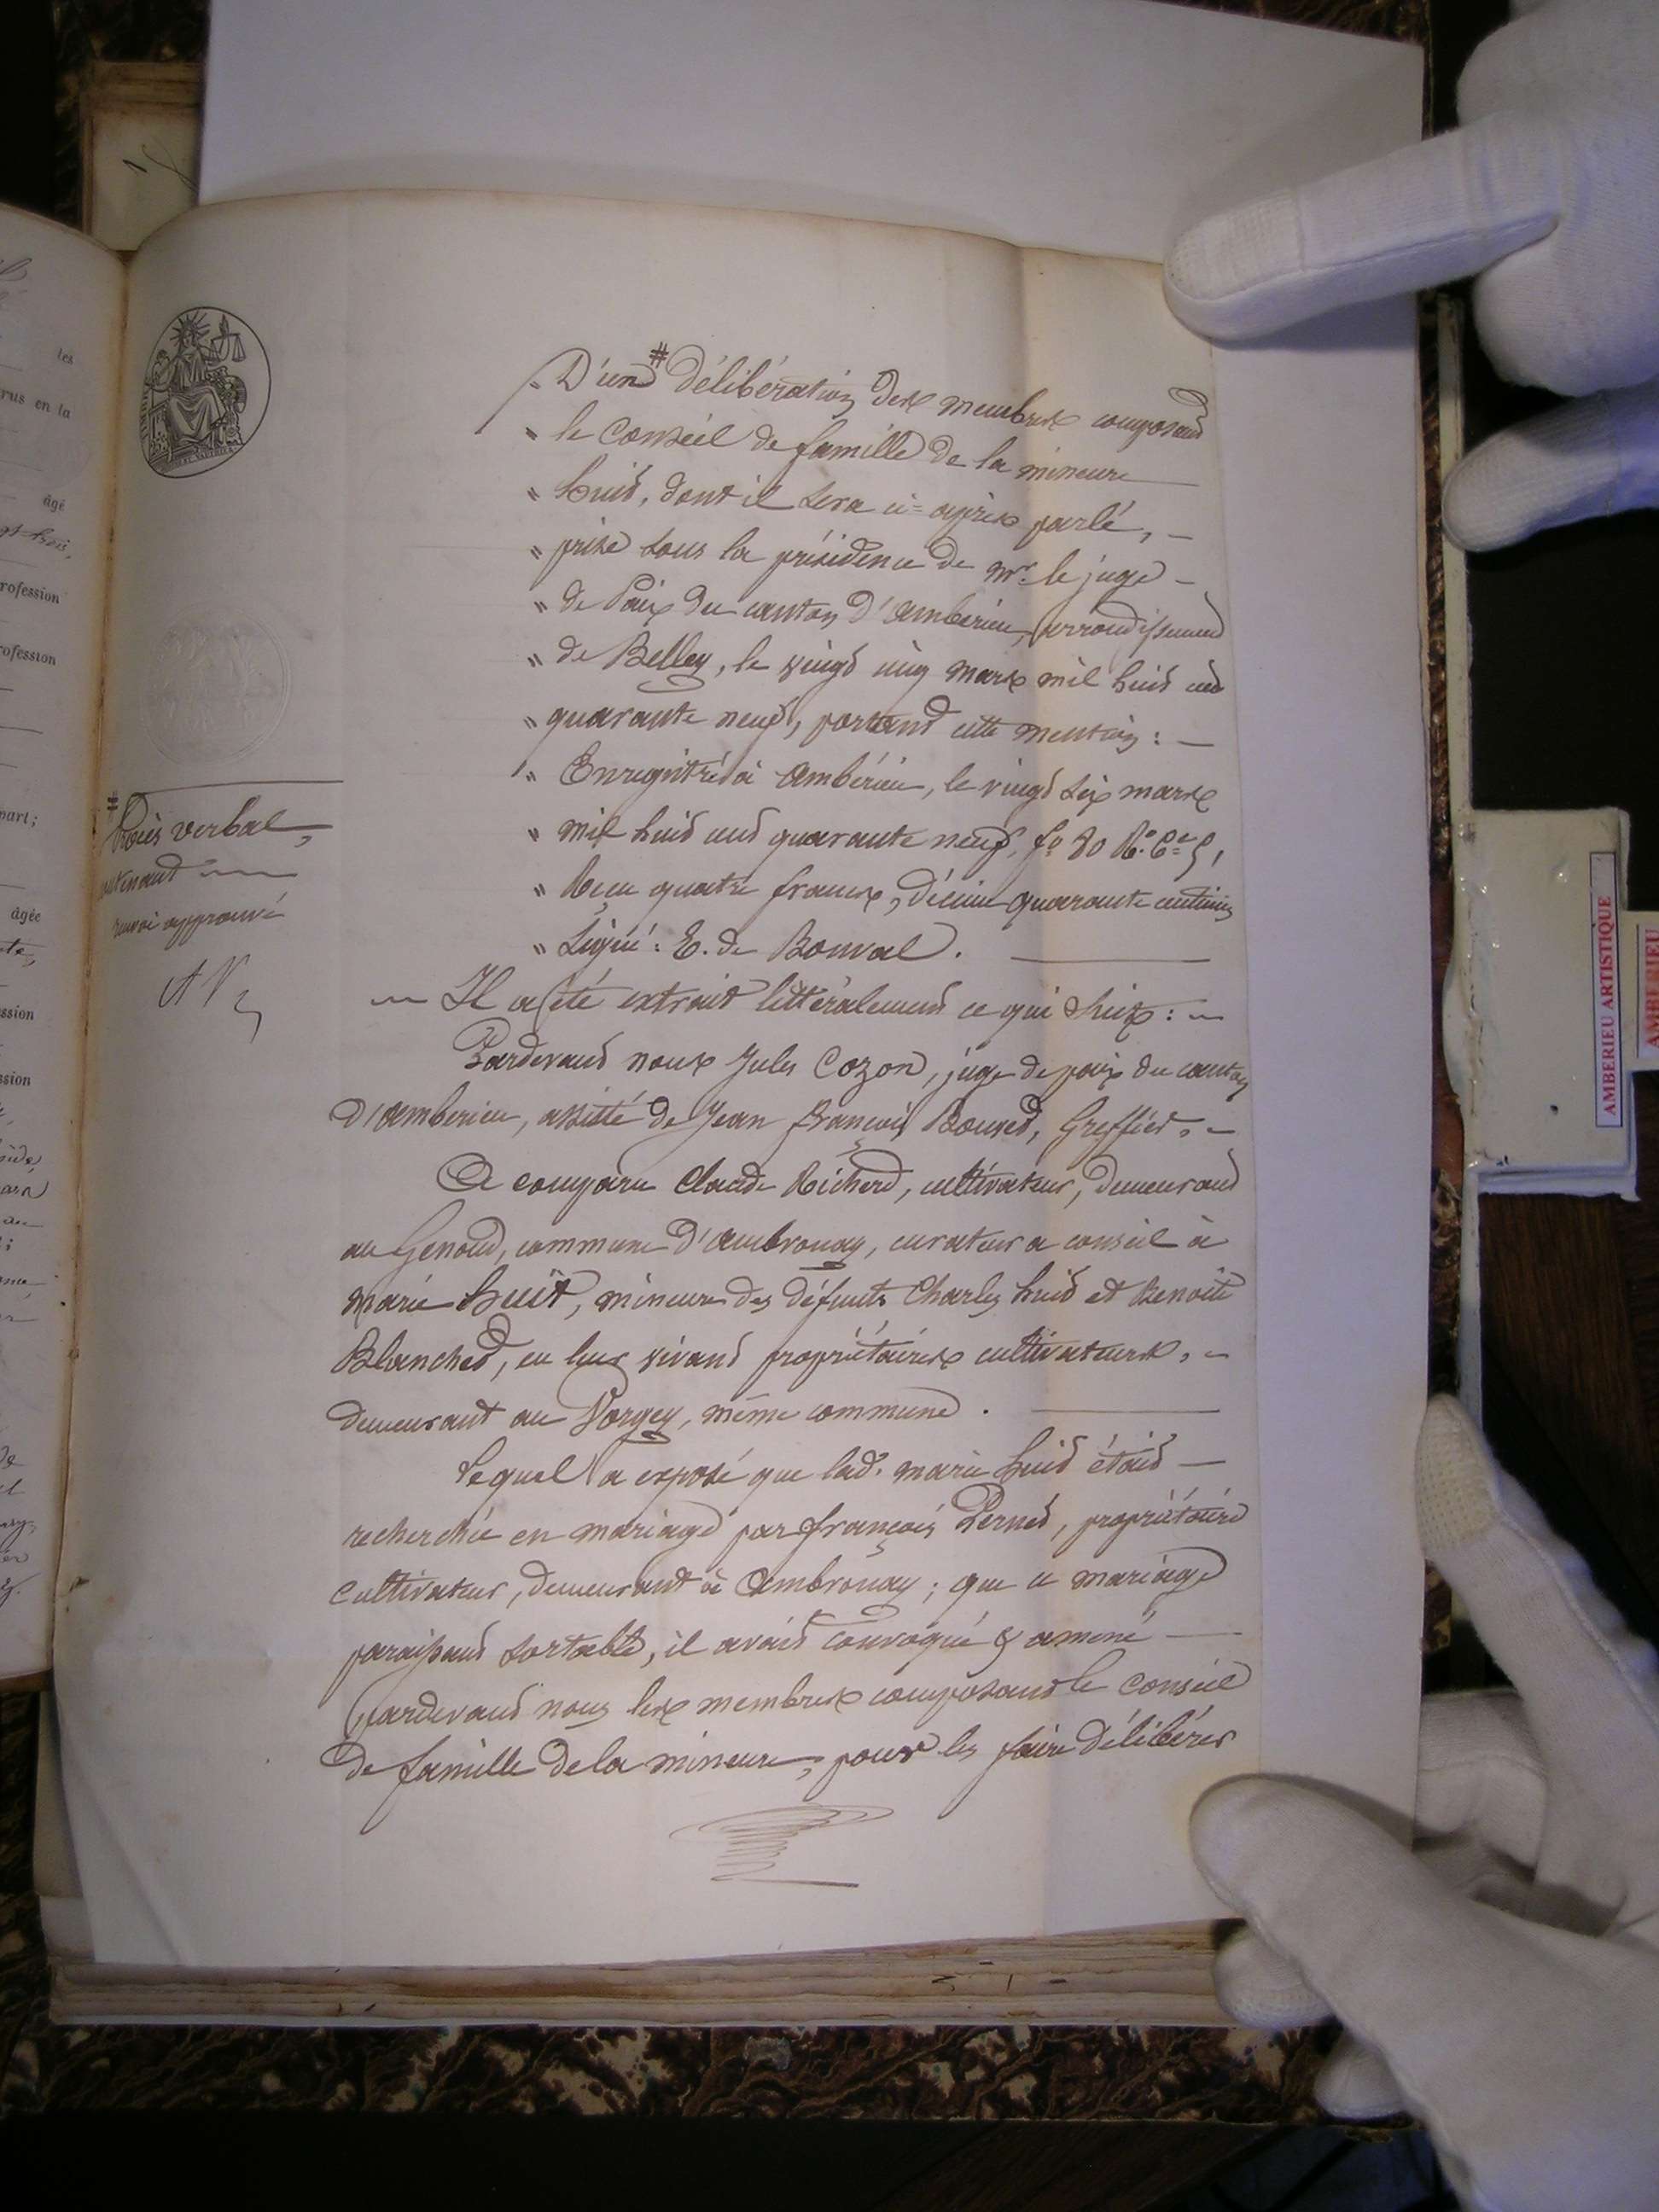 D'un # délibération des membres composant
" le Conseil de famille de la mineure
" huit, dont il sera ci-après parlé,
" prise sous la présidence de Mr. le juge
" de Paix du canton d'Ambérieu, arrondissement
" de Belley, le vingt cinq mars mil huit cent
" quarante neuf, portant cette mention :
" Enregistré à Ambérieu, le vingt six mars
" mil huit cent quarante neuf, fo 80 Ro Ce 5,
" Reçu quatre francs, décime quarante centimes
" Signé : E. de Bonval.
Il a été extrait littéralement ce qui suit :
Pardevant nous Jules Cozon, juge de paix du canton
d'Ambérieu, assisté de Jean François Bouvet, Greffier,
A comparu Claude Richerd, cultivateur, demeurant
au Genoud, commune d'Ambronay, curateur a conseil à
Marie huit, mineure des défunts Charles huit et Benoite
Blanchet, en leur vivant propriétaires cultivateurs,
demeurant au Vorgey, même commune.
Lequel a exposé que lad. marie huit était
recherchée en mariage par françois Pernet, propriétaire
cultivateur, demeurant à Ambronay ; que ce mariage
paraissant sortable, il avait convoqué & amené
pardevant nous les membres composant le Conseil
de famille de la mineure, pour les faire délibérer
# Procès verbal,
contenant
renvoi approuvé
les
rus en la
âgé
gt trois,
rofession
rofession
part ;
âgée
ssion
ssion
AMBERIEU ARTISTIQUE
AMBERIEU